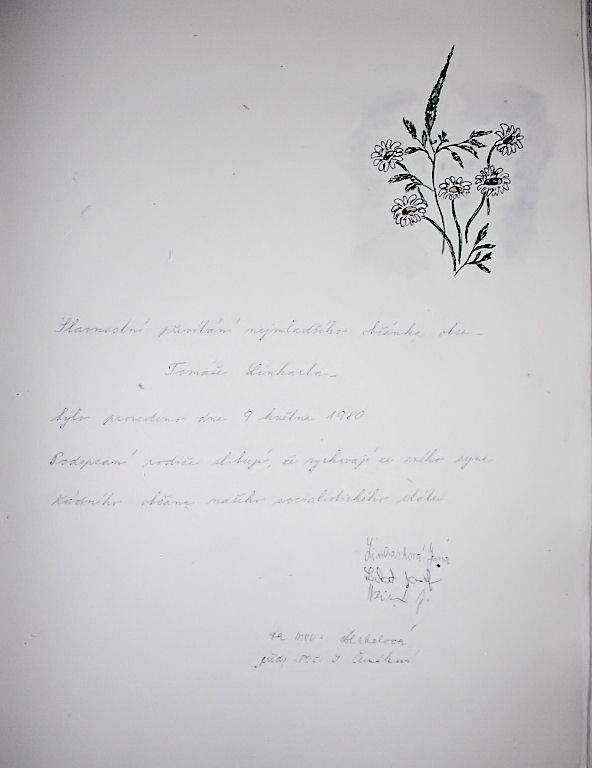 Slavnostní přivítání nejmladšího občánka obce –
Tomáše Linharta –
bylo provedeno dne 9 května 1980
Podepsaní rodiče slibují, že vychovají ze svého syna
řádného občana našeho socialistického státu
Linhartová Jana
Josef
J.
za
předs. J